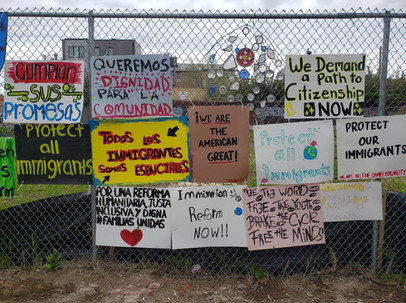 CUMPLAN
SUS
PROMESAS
QUEREMOS
DIGNIDAD
PARA LA
COMUNIDAD
We Demand
a Path to
Citizenship
NOW
Protect all
immigrants
TODOS LOS
IMMIGRANTES
SOMOS ESENCIALES
¡WE ARE
THE
AMERICAN
GREAT!
Protect
all
Immigrants
PROTECT
OUR
IMMIGRANTS
POR UNA REFORMA
HUMANITARIA, JUSTA
INCLUSIVA Y DIGNA
#FAMILIAS UNIDAS
Immigration
Reform
Now!!
THE WORD
THE YOUTH
THE CYCLE
FREE THE MINDS
DIGNIDAD